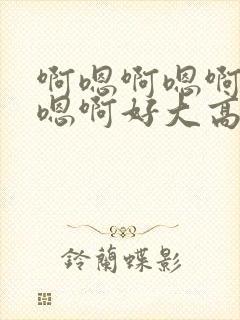 啊嗯啊嗯啊
嗯啊好大高
鈴蘭蝶影